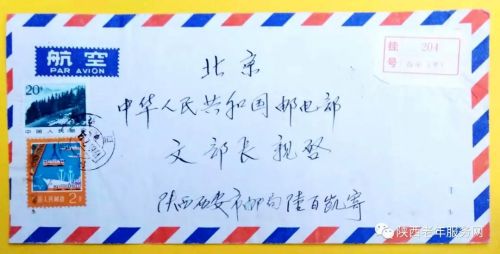 航空
PAR AVION
挂 204
号
20分
中国人民邮政
中国人民邮政
2分
北京
中华人民共和国邮电部
文部长亲启
陕西西安市邮局陆百凯寄
陕西老年服务网